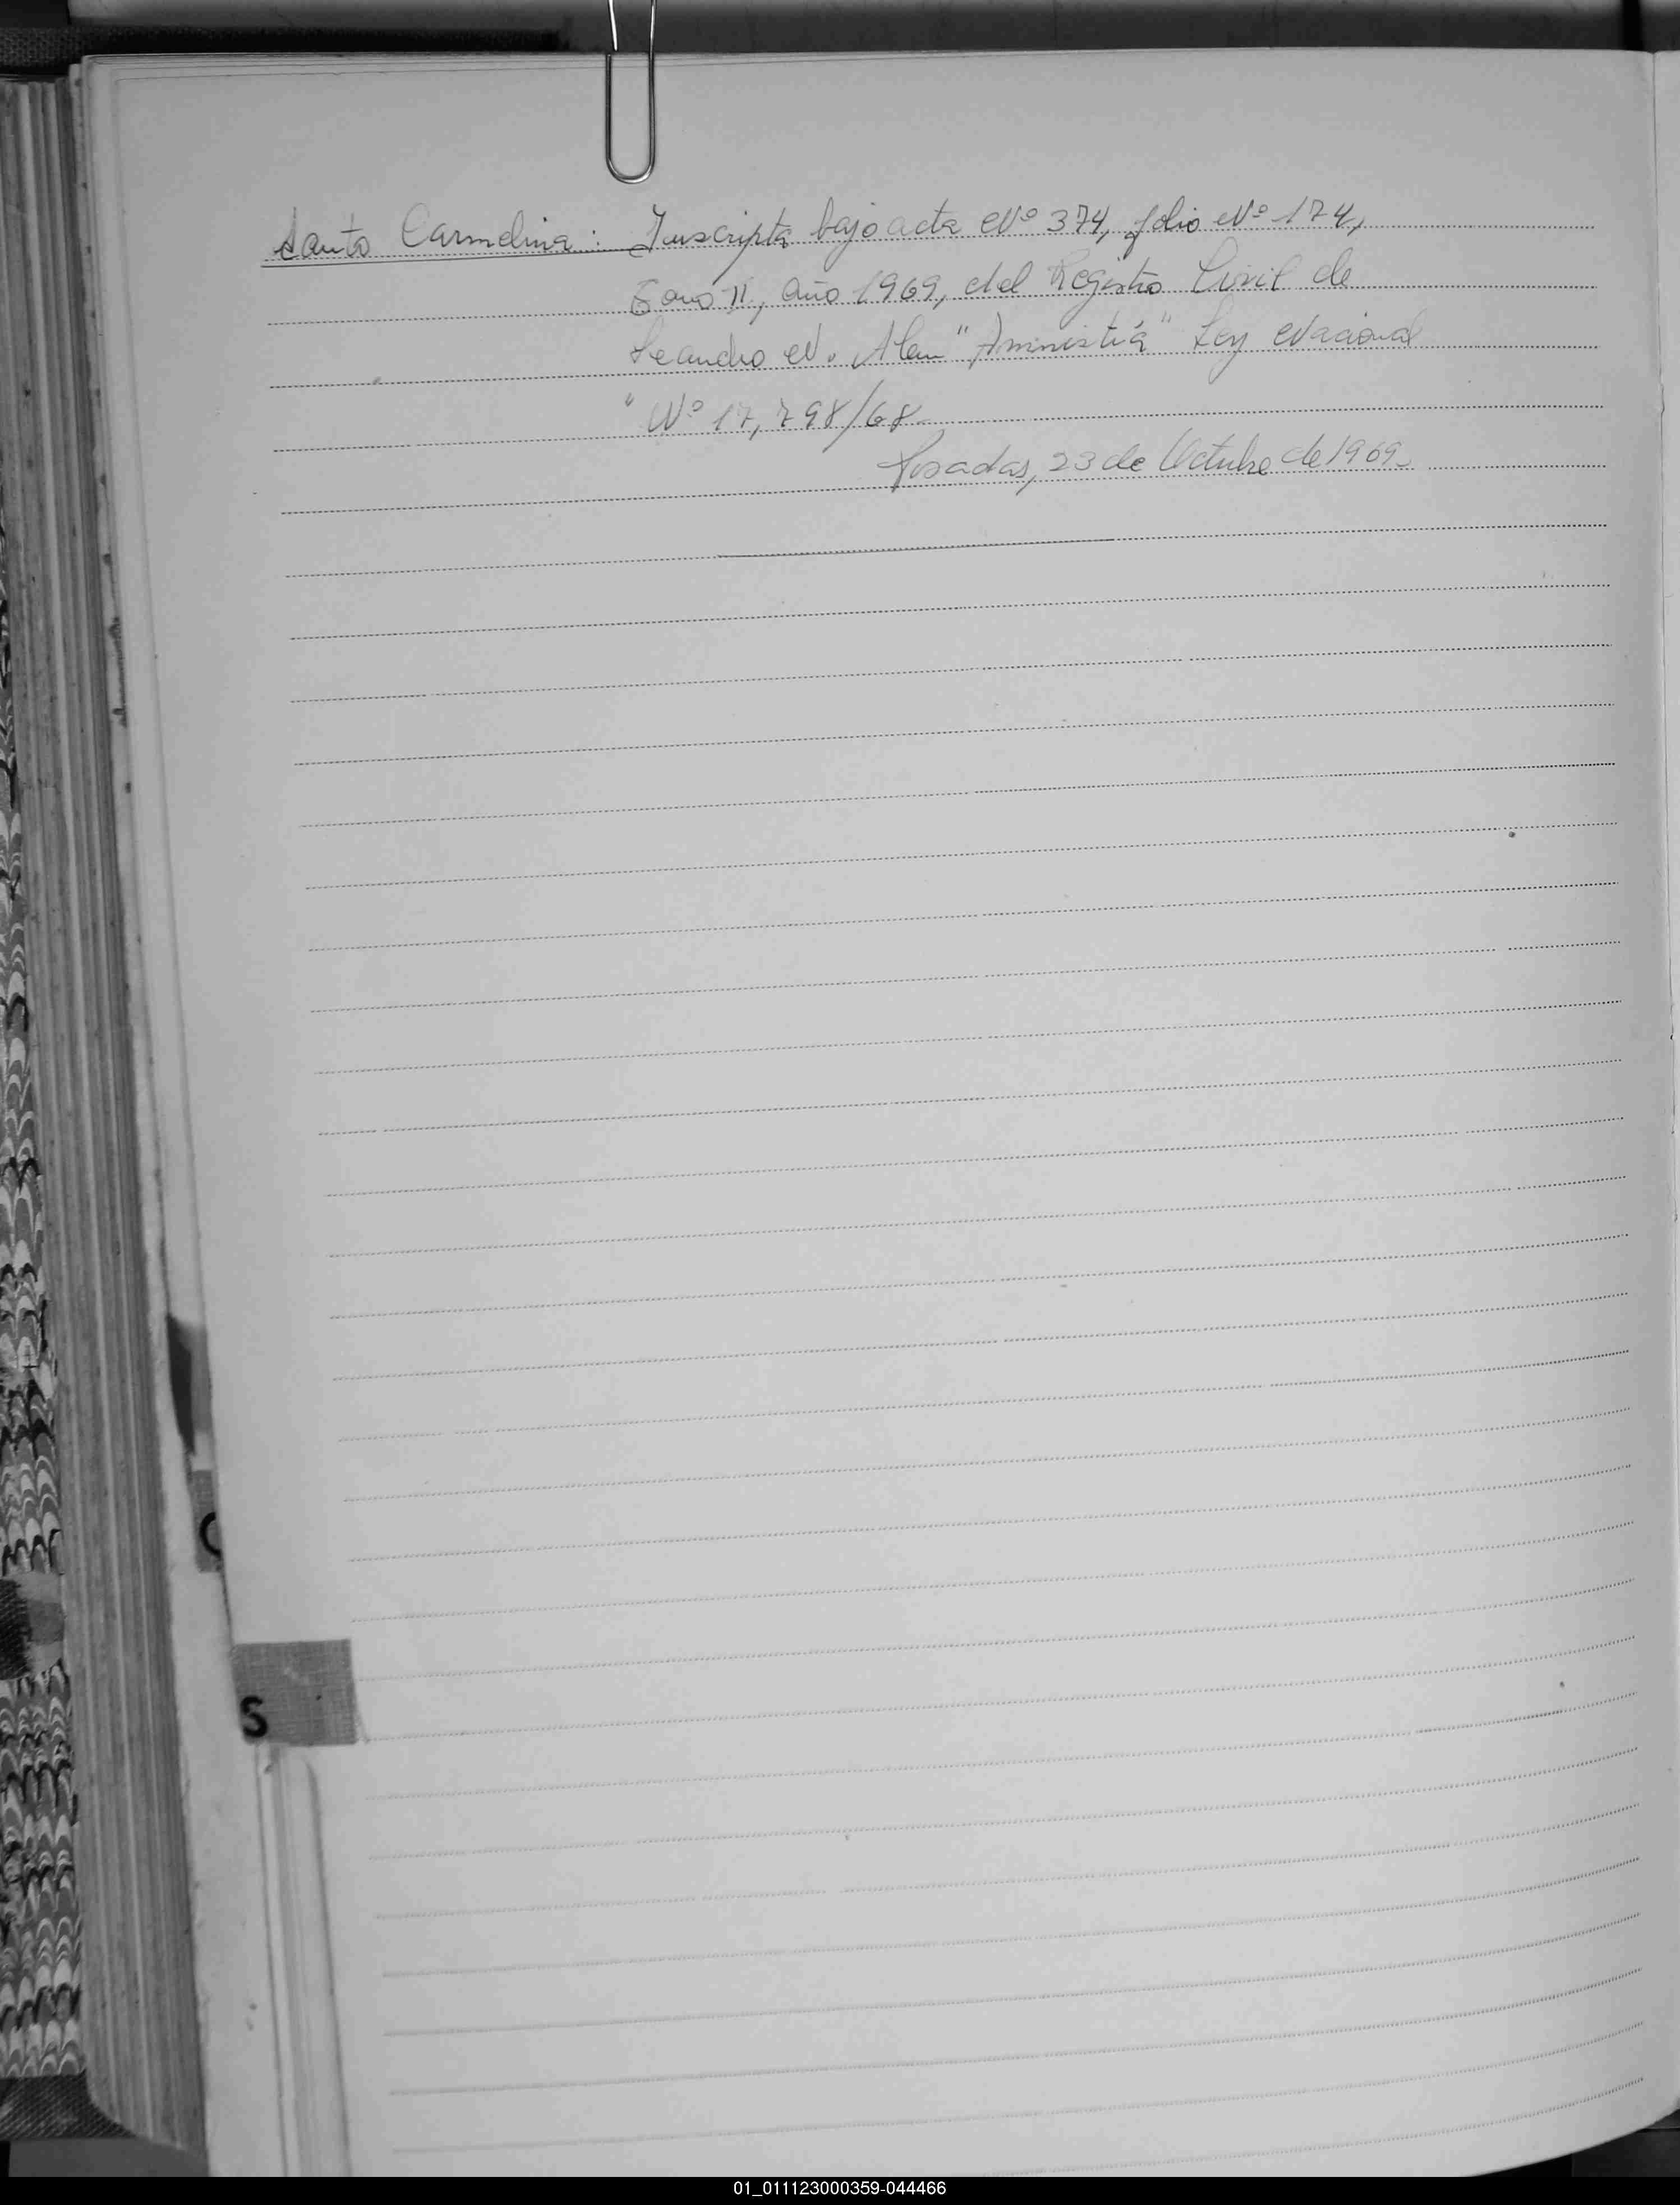 Santo Carmelina: Inscripta bajo acta Nº 374, folio Nº 174,
Tomo II, año 1969, del Registro Civil de
Leandro N. Alem "Amnistía" Ley Nacional
" Nº 17,798/68.
Posadas, 23 de Octubre de 1969.
C
S
01_011123000359-044466